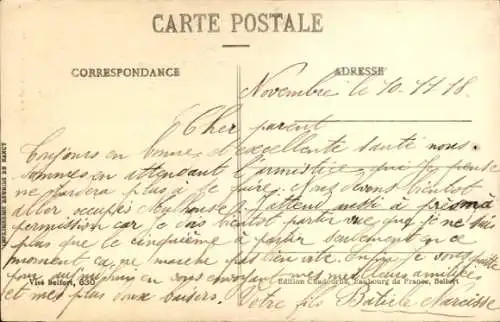 CARTE POSTALE
CORRESPONDANCE
ADRESSE
Novembre le 10-11-18.
Cher parent
Toujours en bonne et excellente santé nous
sommes en attendant l'armistice qui je pense
ne tardera plus à se faire. Nous devons bientôt
aller occuper Mulhouse. J'attend aussi à
permission car je dois bientôt partir vue que je ne suis
plus que le cinquième à partir seulement en ce
moment ca ne marche pas bien vite. Enfin je vous quitte
en vous envoyant mes meilleurs amitiés
et mes plus doux baisers. Votre fils Narcisse
Visé Belfort, 630
Edition Chadourne, Faubourg de France, Belfort